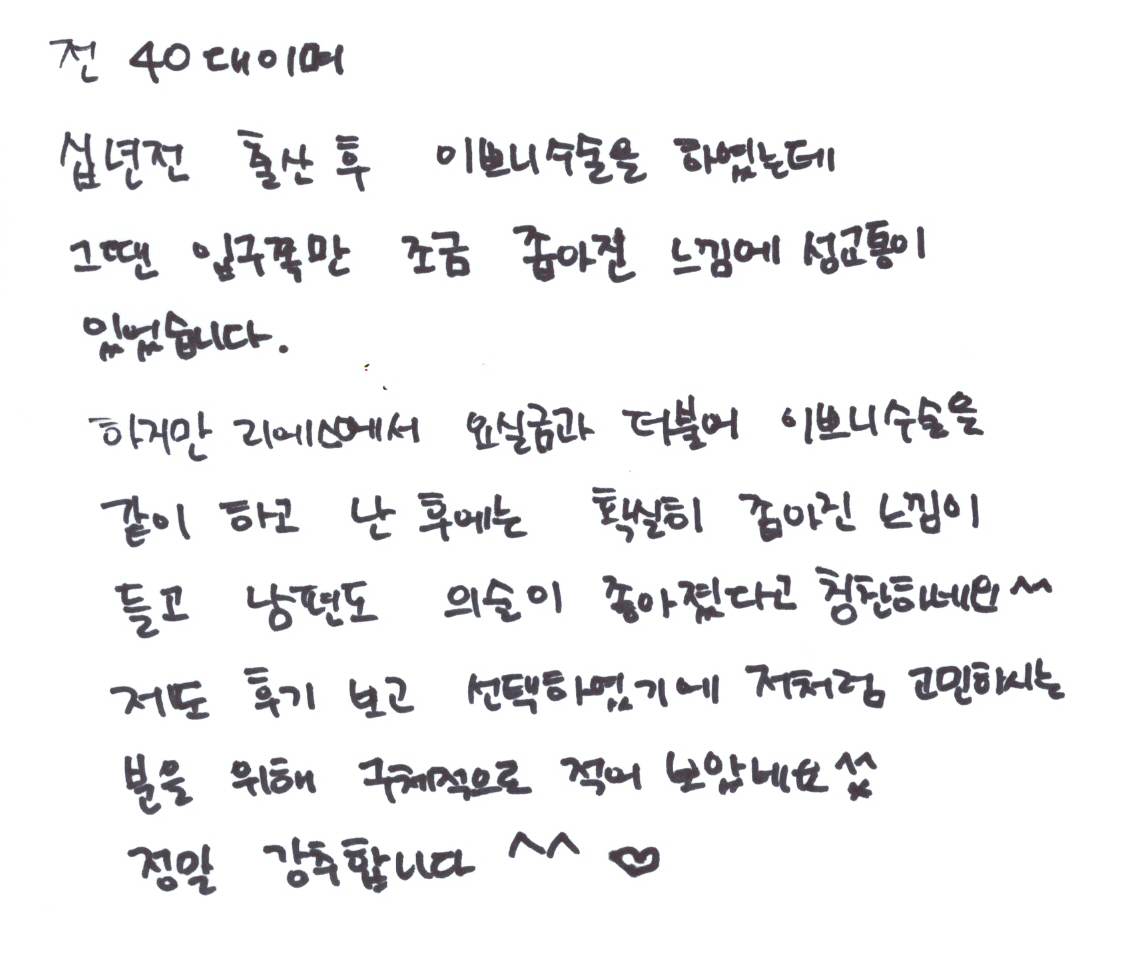 전 40대이며
십년전 출산 후 이쁘니수술을 하였는데
그땐 입구쪽만 조금 좁아진 느낌에 성교통이
있었습니다.
하지만 리에스에서 요실금과 더불어 이쁘니수술을
같이 하고 난 후에는 확실히 좁아진 느낌이
들고 남편도 의술이 좋아졌다고 칭찬하네요^^
저도 후기 보고 선택하였기에 저처럼 고민하시는
분을 위해 구체적으로 적어 보았네요
정말 강추합니다 ^^ ♡